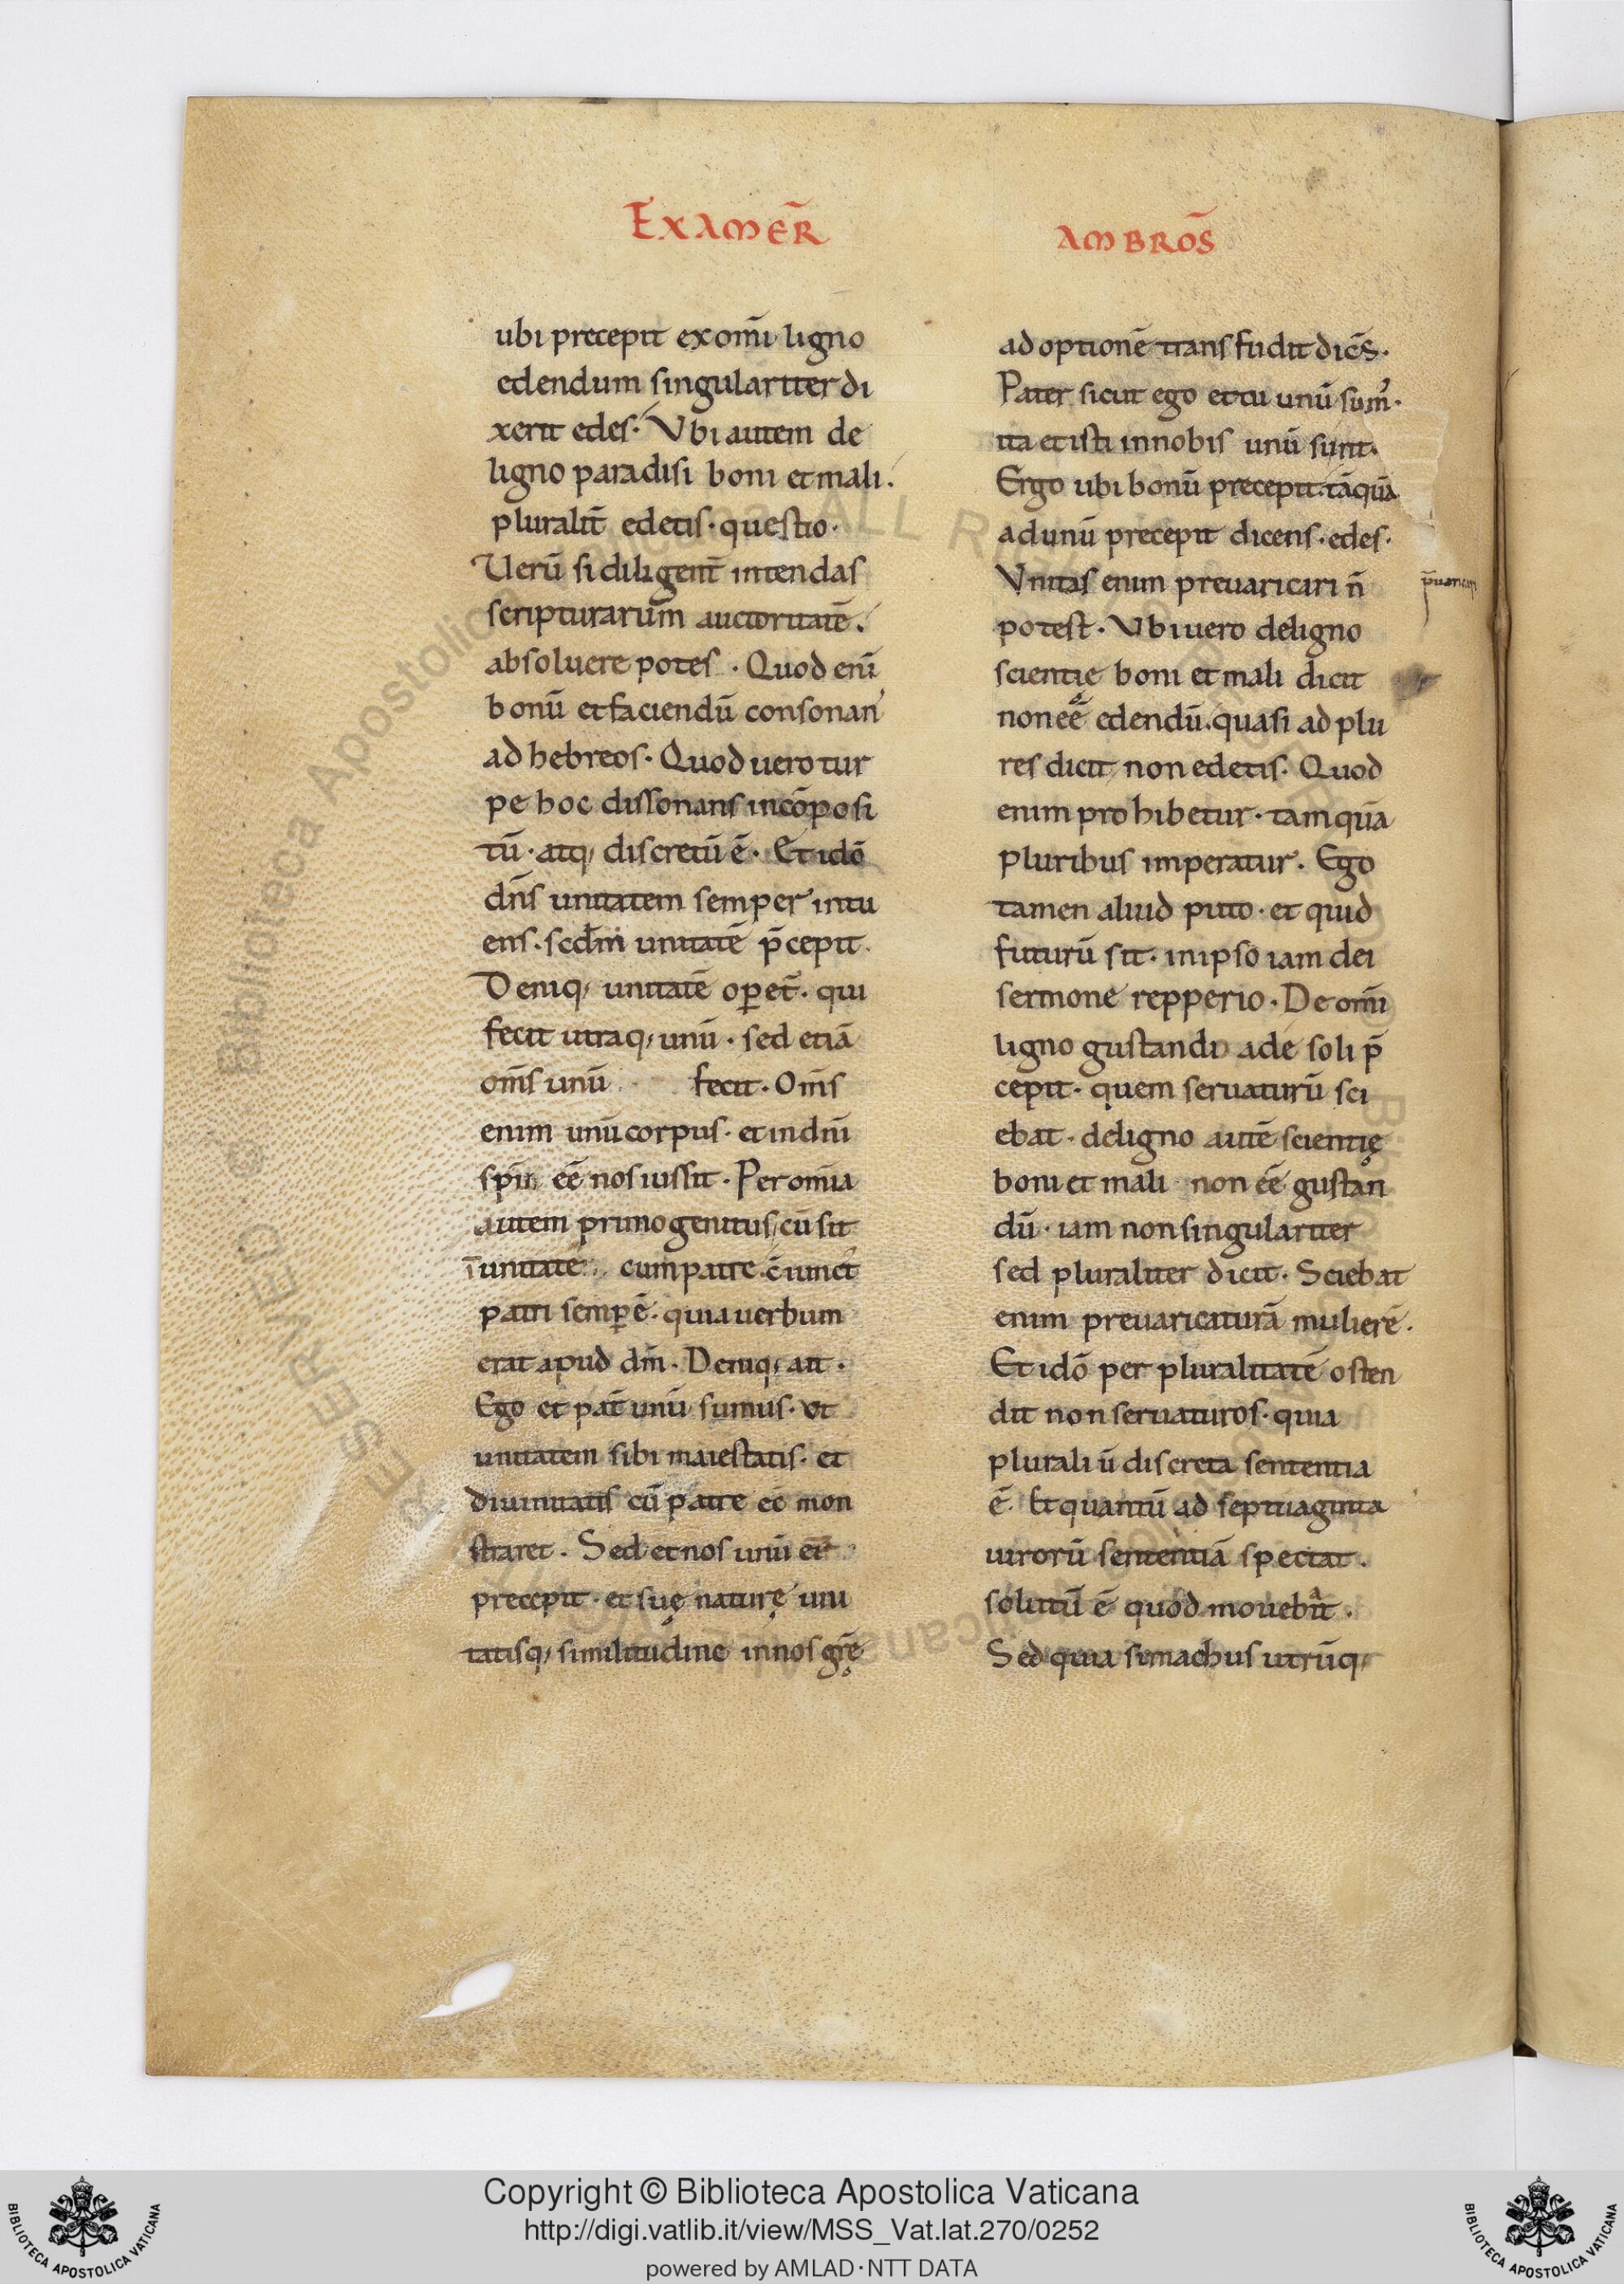 EXAMER̄
ubi precepit ex om̄i ligno
edendum singulariter di
xerit edes. Vbi autem de
ligno paradisi boni et mali.
pluralit̄ edetis. questio.
Uerū si diligent̄ intendas
scripturarum auctoritatē.
absoluere potes. Quod enī
bonū et faciendū consonan
ad hebreos. Quod uero tur
pe hoc dissonans incōposi
tū. atq; discretū ē. Et idō
dn̄s unitatem semper intu
ens. scdm̄ unitatē p̄cepit.
Deniq; unitatē opet̄. qui
fecit utraq; unū. sed etiā
om̄s unū fecit. Om̄s
enim unū corpus. et in dnī
spīn eē nos iussit. Per om̄ia
autem primogenitus, cū sit
ī unitate cum patre ē iunct
patri semp ē. quia uerbum
erat apud dm̄. Deniq; ait.
Ego et pat̄ unū sumus. ut
unitatem sibi maiestatis. et
diuinitatis cū patre eē mon
straret. Sed et nos unū eē
precepit. et suę naturę uni
tatisq; similitudine in nos gr̄ę
AMBROS̄
adoptionē transfudit dicēs.
Pater sicut ego et tu unū sum᾿.
ita et isti in nobis unū sunt.
Ergo ubi bonū precepit. tāquā
ad unū precepit dicens. edes.
Vnitas enim preuaricari n̄
potest. Vbi uero de ligno
scientię boni et mali dicit
non eē edendū. quasi ad plu
res dicit non edetis. Quod
enim prohibetur. tamquā
pluribus imperatur. Ego
tamen aliud puto. et quid
futurū sit. in ipso iam dei
sermone repperio. De om̄i
ligno gustandi adę soli p̄
cepit. quem seruaturū sci
ebat. de ligno autē scientię
boni et mali non eē gustan
dū. iam non singulariter
sed pluraliter dicit. Sciebat
enim preuaricaturā mulierē.
Et idō per pluralitatē osten
dit non seruaturos. quia
plurali ū discreta sententia
ē. Et quantū ad septuaginta
uirorū sententiā spectat.
solutū ē quod mouebat.
Sed quia simachus utrūq;
Copyright © Biblioteca Apostolica Vaticana
http://digi.vatlib.it/view/MSS_Vat.lat.270/0252
powered by AMLAD·NTT DATA
BIBLIOTECA APOSTOLICA VATICANA
BIBLIOTECA APOSTOLICA VATICANA